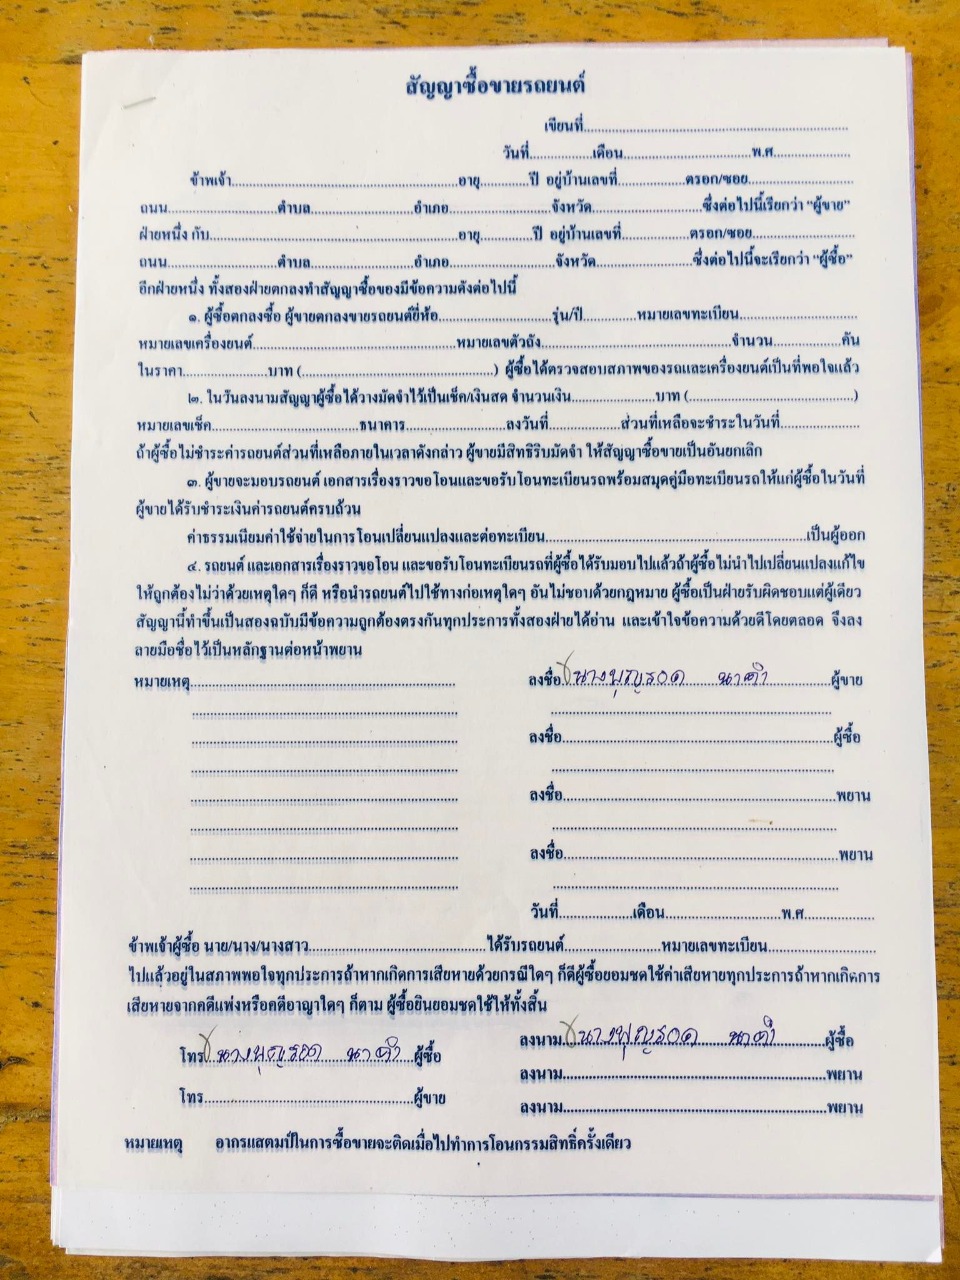 สัญญาซื้อขายรถยนต์
เขียนที่..........
วันที่..........เดือน..........พ.ศ..........
ข้าพเจ้า..........อายุ..........ปี อยู่บ้านเลขที่..........ตรอก/ซอย..........
ถนน..........ตำบล..........อำเภอ..........จังหวัด..........ซึ่งต่อไปนี้เรียกว่า "ผู้ขาย"
ฝ่ายหนึ่ง กับ..........อายุ..........ปี อยู่บ้านเลขที่..........ตรอก/ซอย..........
ถนน..........ตำบล..........อำเภอ..........จังหวัด..........ซึ่งต่อไปนี้จะเรียกว่า "ผู้ซื้อ"
อีกฝ่ายหนึ่ง ทั้งสองฝ่ายตกลงทำสัญญาซื้อของมีข้อความดังต่อไปนี้
๑. ผู้ซื้อตกลงซื้อ ผู้ขายตกลงขายรถยนต์ยี่ห้อ..........รุ่น/ปี..........หมายเลขทะเบียน..........
หมายเลขเครื่องยนต์..........หมายเลขตัวถัง..........จำนวน..........คัน
ในราคา..........บาท (..........) ผู้ซื้อได้ตรวจสอบสภาพของรถและเครื่องยนต์เป็นที่พอใจแล้ว
๒. ในวันลงนามสัญญาผู้ซื้อได้วางมัดจำไว้เป็นเช็ค/เงินสด จำนวนเงิน..........บาท (..........)
หมายเลขเช็ค..........ธนาคาร..........ลงวันที่..........ส่วนที่เหลือจะชำระในวันที่..........
ถ้าผู้ซื้อไม่ชำระค่ารถยนต์ส่วนที่เหลือภายในเวลาดังกล่าว ผู้ขายมีสิทธิริบมัดจำ ให้สัญญาซื้อขายเป็นอันยกเลิก
๓. ผู้ขายจะมอบรถยนต์ เอกสารเรื่องราวขอโอนและขอรับโอนทะเบียนรถพร้อมสมุดคู่มือทะเบียนรถให้แก่ผู้ซื้อในวันที่
ผู้ขายได้รับชำระเงินค่ารถยนต์ครบถ้วน
ค่าธรรมเนียมค่าใช้จ่ายในการโอนเปลี่ยนแปลงและต่อทะเบียน..........เป็นผู้ออก
๔. รถยนต์ และเอกสารเรื่องราวขอโอน และขอรับโอนทะเบียนรถที่ผู้ซื้อได้รับมอบไปแล้วถ้าผู้ซื้อไม่นำไปเปลี่ยนแปลงแก้ไข
ให้ถูกต้องไม่ว่าด้วยเหตุใดๆ ก็ดี หรือนำรถยนต์ไปใช้ทางก่อเหตุใดๆ อันไม่ชอบด้วยกฎหมาย ผู้ซื้อเป็นฝ่ายรับผิดชอบแต่ผู้เดียว
สัญญานี้ทำขึ้นเป็นสองฉบับมีข้อความถูกต้องตรงกันทุกประการทั้งสองฝ่ายได้อ่าน และเข้าใจข้อความด้วยดีโดยตลอด จึงลง
ลายมือชื่อไว้เป็นหลักฐานต่อหน้าพยาน
หมายเหตุ.......... ลงชื่อ นางบุญรอด นาคำ ผู้ขาย
ลงชื่อ..........ผู้ซื้อ
ลงชื่อ..........พยาน
ลงชื่อ..........พยาน
วันที่..........เดือน..........พ.ศ..........
ข้าพเจ้าผู้ซื้อ นาย/นาง/นางสาว..........ได้รับรถยนต์..........หมายเลขทะเบียน..........
ไปแล้วอยู่ในสภาพพอใจทุกประการถ้าหากเกิดการเสียหายด้วยกรณีใดๆ ก็ดีผู้ซื้อยอมชดใช้ค่าเสียหายทุกประการถ้าหากเกิดการ
เสียหายจากคดีแพ่งหรือคดีอาญาใดๆ ก็ตาม ผู้ซื้อยินยอมชดใช้ให้ทั้งสิ้น
โทร นางบุญรอด นาคำ ผู้ซื้อ ลงนาม นางบุญรอด นาคำ ผู้ซื้อ
ลงนาม..........พยาน
โทร..........ผู้ขาย ลงนาม..........พยาน
หมายเหตุ อากรแสตมป์ในการซื้อขายจะติดเมื่อไปทำการโอนกรรมสิทธิ์ครั้งเดียว